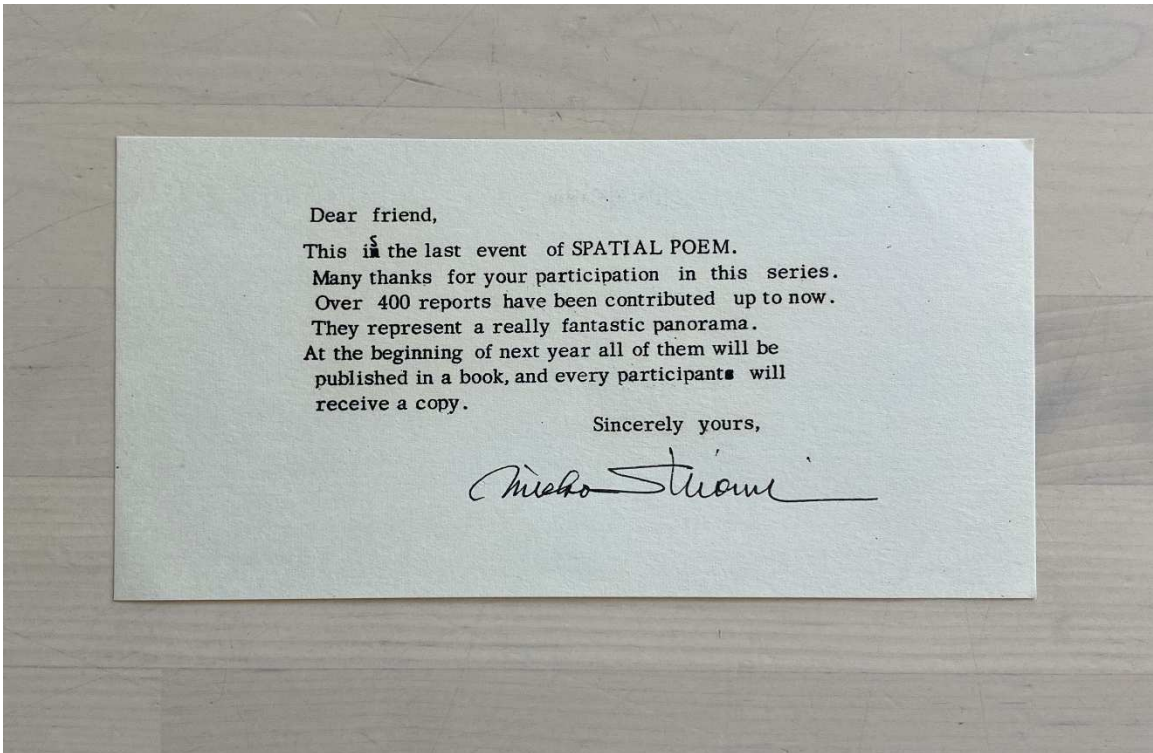 Dear friend,
This is the last event of SPATIAL POEM.
Many thanks for your participation in this series.
Over 400 reports have been contributed up to now.
They represent a really fantastic panorama.
At the beginning of next year all of them will be
published in a book, and every participant will
receive a copy.
Sincerely yours,
Mieko Shiomi